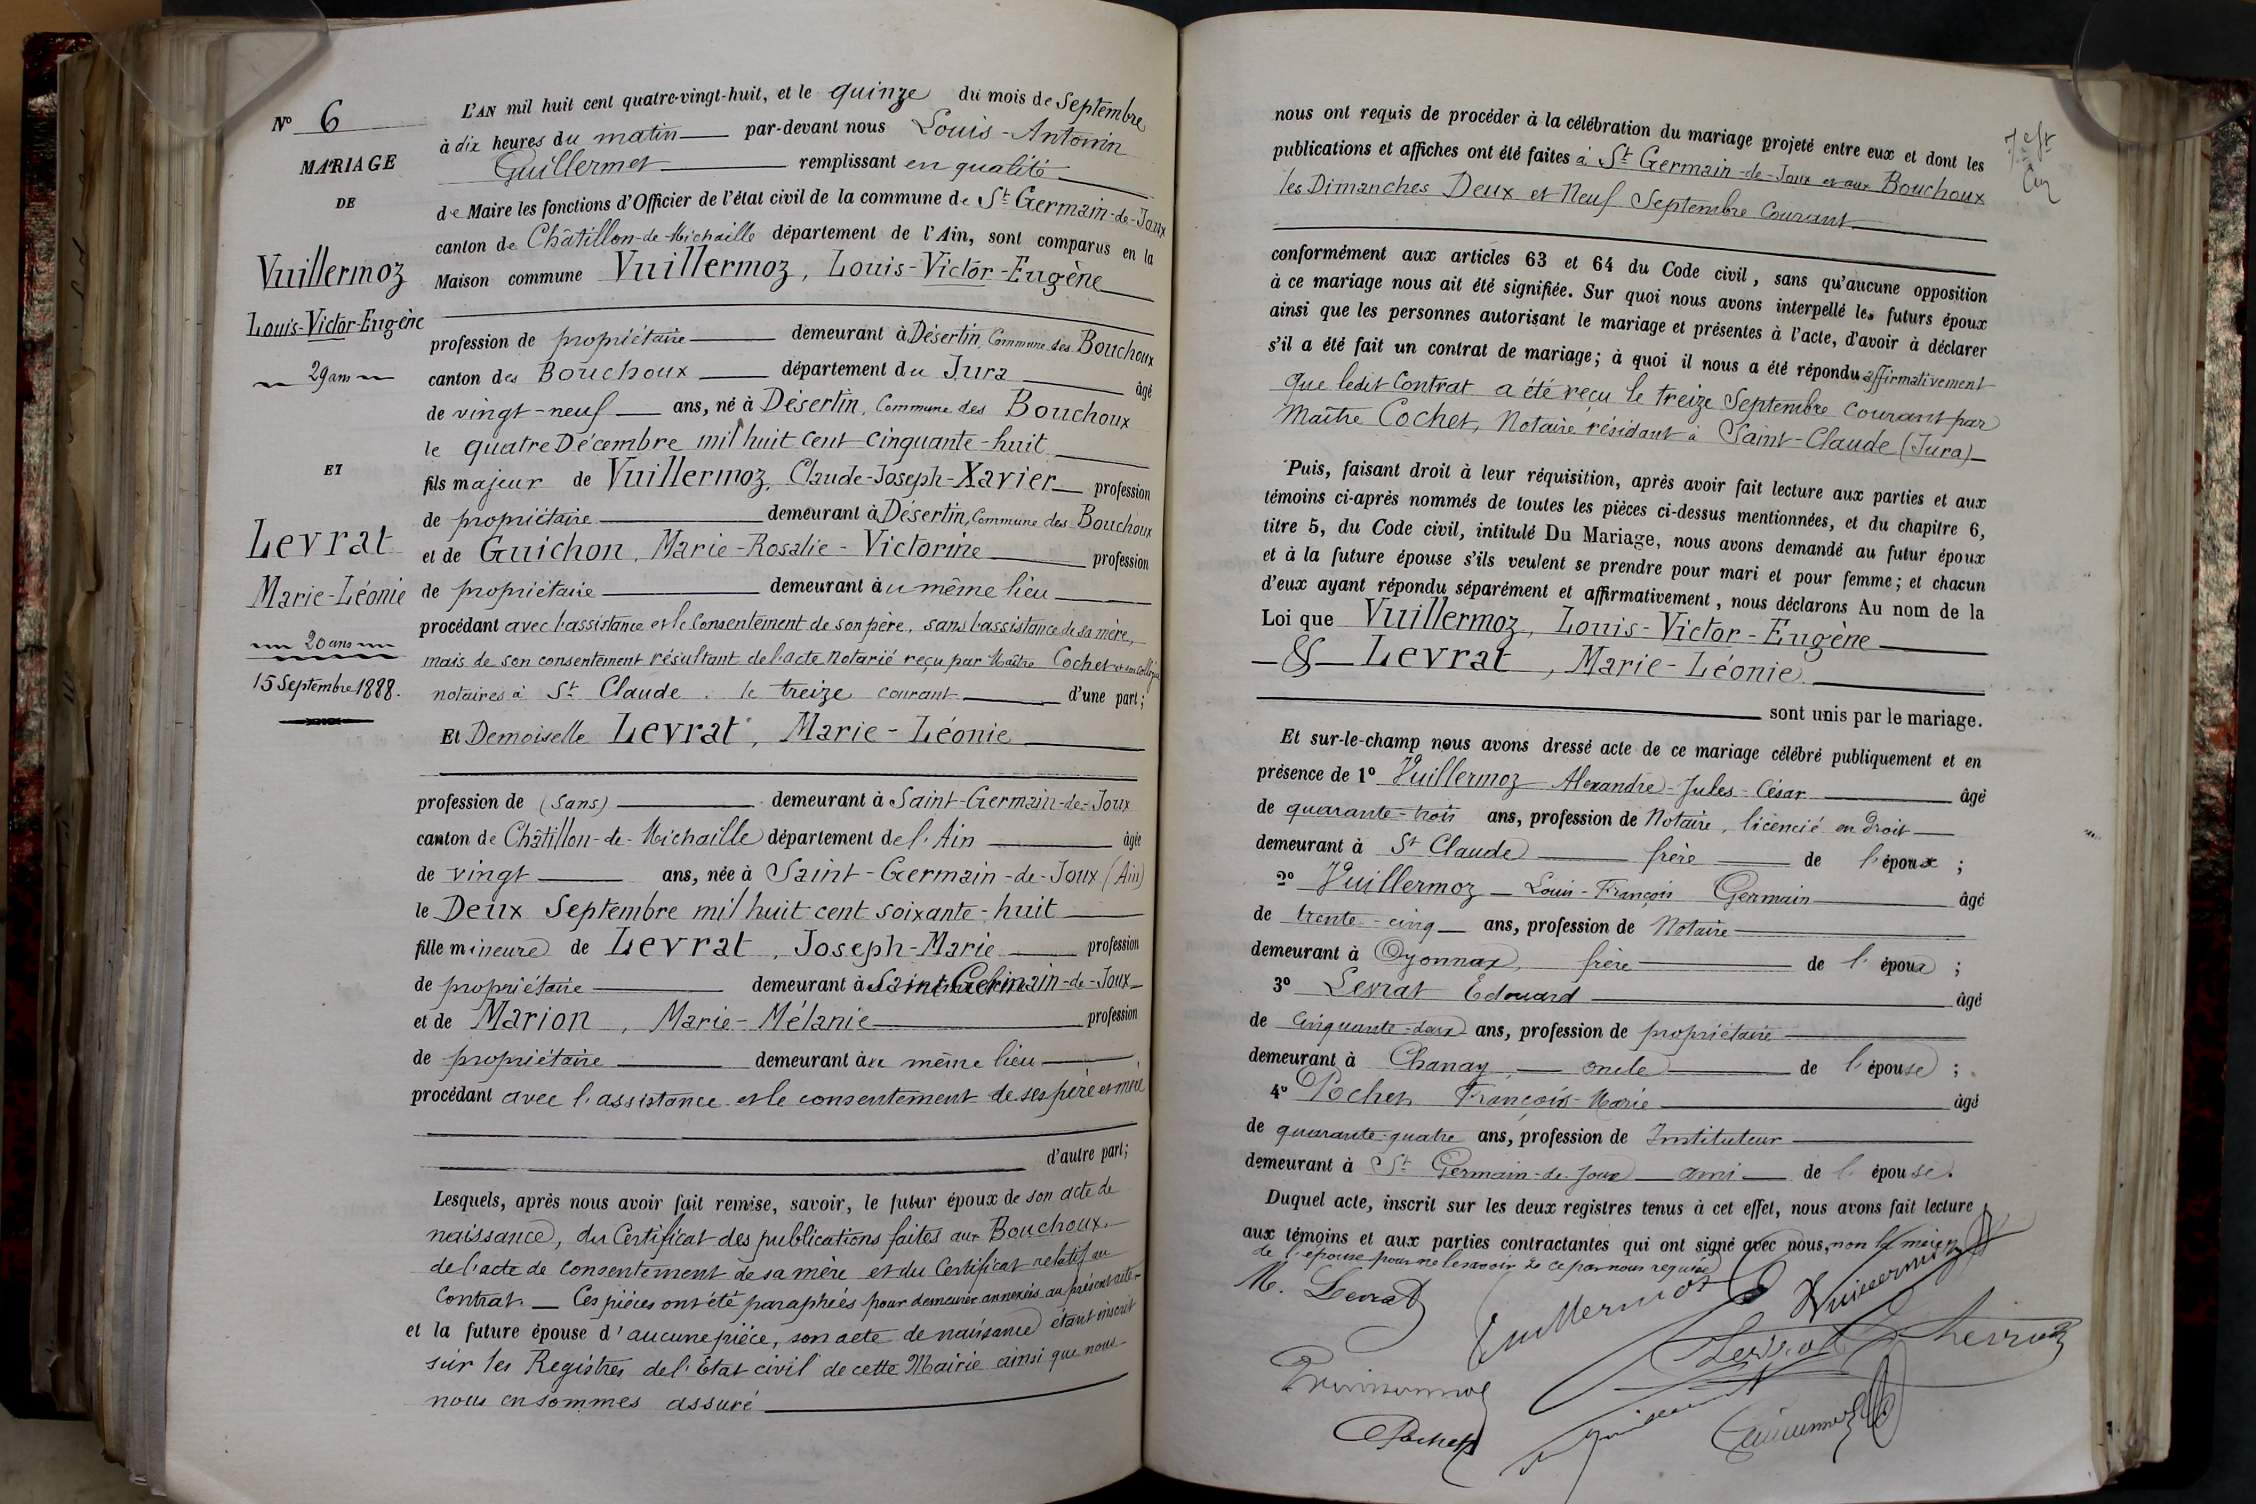 N° 6
MARIAGE
DE
Vuillermoz
Louis-Victor-Eugène
29 ans
ET
Levrat
Marie-Léonie
20 ans
15 Septembre 1888.
L'AN mil huit cent quatre-vingt-huit, et le quinze du mois de Septembre
à dix heures du matin par-devant nous Louis-Antonin
Guillermet remplissant en qualité
de Maire les fonctions d'Officier de l'état civil de la commune de St Germain-de-Joux
canton de Châtillon-de-Michaille département de l'Ain, sont comparus en la
Maison commune Vuillermoz, Louis-Victor-Eugène
profession de propriétaire demeurant à Désertin, Commune des Bouchoux
canton des Bouchoux département du Jura âgé
de vingt-neuf ans, né à Désertin, Commune des Bouchoux
le quatre Décembre mil huit cent cinquante-huit
fils majeur de Vuillermoz, Claude-Joseph-Xavier profession
de propriétaire demeurant à Désertin, Commune des Bouchoux
et de Guichon, Marie-Rosalie-Victorine profession
de propriétaire demeurant au même lieu
procédant avec l'assistance et le consentement de son père, sans l'assistance de sa mère,
mais de son consentement résultant de l'acte notarié reçu par Maître Cochet et son collègue
notaires à St Claude, le treize courant d'une part;
Et Demoiselle Levrat, Marie-Léonie
profession de (sans) demeurant à Saint-Germain-de-Joux
canton de Châtillon-de-Michaille département de l'Ain âgée
de vingt ans, née à Saint-Germain-de-Joux (Ain)
le Deux Septembre mil huit cent soixante-huit
fille mineure de Levrat, Joseph-Marie profession
de propriétaire demeurant à Saint-Germain-de-Joux
et de Marion, Marie-Mélanie profession
de propriétaire demeurant au même lieu
procédant avec l'assistance et le consentement de ses père et mère
d'autre part;
Lesquels, après nous avoir fait remise, savoir, le futur époux de son acte de
naissance, du Certificat des publications faites aux Bouchoux,
de l'acte de consentement de sa mère et du Certificat relatif au
contrat. Ces pièces ont été paraphées pour demeurer annexées au présent acte
et la future épouse d'aucune pièce, son acte de naissance étant inscrit
sur les Registres de l'Etat civil de cette Mairie ainsi que nous
nous en sommes assuré
nous ont requis de procéder à la célébration du mariage projeté entre eux et dont les
publications et affiches ont été faites à St Germain-de-Joux et aux Bouchoux
les Dimanches Deux et Neuf Septembre Courant
conformément aux articles 63 et 64 du Code civil, sans qu'aucune opposition
à ce mariage nous ait été signifiée. Sur quoi nous avons interpellé les futurs époux
ainsi que les personnes autorisant le mariage et présentes à l'acte, d'avoir à déclarer
s'il a été fait un contrat de mariage; à quoi il nous a été répondu affirmativement
que ledit Contrat a été reçu le treize Septembre courant par
Maître Cochet, Notaire résidant à Saint-Claude (Jura)
Puis, faisant droit à leur réquisition, après avoir fait lecture aux parties et aux
témoins ci-après nommés de toutes les pièces ci-dessus mentionnées, et du chapitre 6,
titre 5, du Code civil, intitulé Du Mariage, nous avons demandé au futur époux
et à la future épouse s'ils veulent se prendre pour mari et pour femme; et chacun
d'eux ayant répondu séparément et affirmativement, nous déclarons Au nom de la
Loi que Vuillermoz, Louis-Victor-Eugène
& Levrat, Marie-Léonie
sont unis par le mariage.
Et sur-le-champ nous avons dressé acte de ce mariage célébré publiquement et en
présence de 1° Vuillermoz Alexandre-Jules-César âgé
de quarante-trois ans, profession de Notaire, licencié en droit
demeurant à St Claude frère de l'époux;
2° Vuillermoz Louis-François Germain âgé
de trente-cinq ans, profession de Notaire
demeurant à Oyonnax, frère de l'époux;
3° Levrat Edouard âgé
de cinquante-deux ans, profession de propriétaire
demeurant à Chanay, oncle de l'épouse;
4° Pochet François-Marie âgé
de quarante-quatre ans, profession de Instituteur
demeurant à St Germain-de-Joux ami de l'épouse.
Duquel acte, inscrit sur les deux registres tenus à cet effet, nous avons fait lecture
aux témoins et aux parties contractantes qui ont signé avec nous, non la mère
de l'épouse pour ne le savoir de ce par nous requise
M. Levrat
Vuillermoz
Levrat
Pochet